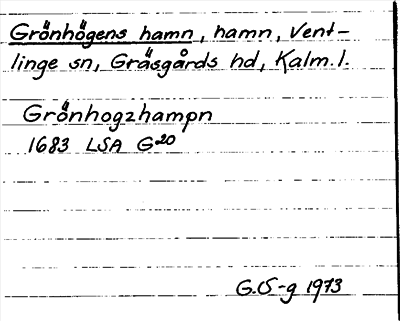 Grönhögens hamn, hamn, Vent-
linge sn, Gräsgårds hd, Kalm. l.
Grönhogzhampn
1683 LSA G20
G.O-g 1973